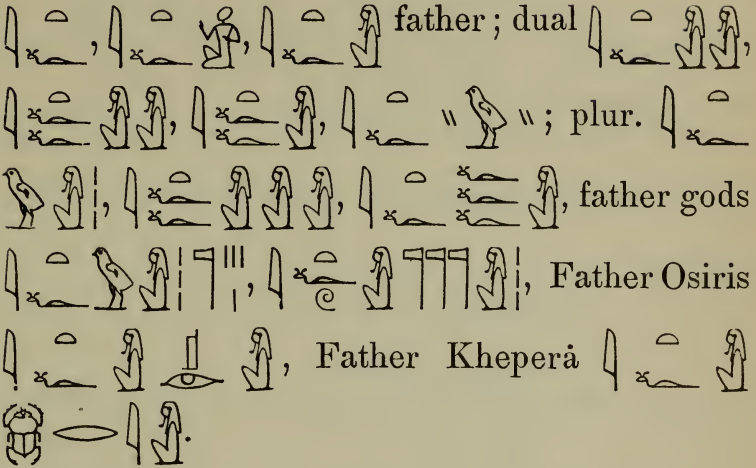 𓇋𓏏𓆑, 𓇋𓏏𓆑𓀀, 𓇋𓏏𓆑𓀭 father ; dual 𓇋𓏏𓆑𓀭𓀭,
𓇋𓏏𓆑𓆑𓀭𓀭, 𓇋𓏏𓆑𓆑𓀭, 𓇋𓏏𓆑𓏭𓅱𓏭 ; plur. 𓇋𓏏𓆑
𓅱𓀭𓏪, 𓇋𓏏𓆑𓆑𓀭𓀭𓀭, 𓇋𓏏𓆑𓆑𓆑𓆑𓀭, father gods
𓇋𓏏𓆑𓅱𓀭𓏪𓊹𓏪𓏤, 𓇋𓏏𓆑𓏲𓀭𓊹𓊹𓊹𓀭𓏪, Father Osiris
𓇋𓏏𓆑𓀭𓊨𓁹𓀭, Father Kheperå 𓇋𓏏𓆑𓀭
𓆣𓂋𓇋𓀭.